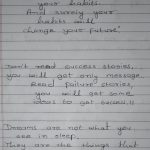 your habits
And surely your
habits will
change your future"
Don't read success stories,
you will get only message.
Read failure stories,
you will get some
ideas to get success!!
Dreams are not what you
see in sleep,
They are the things that